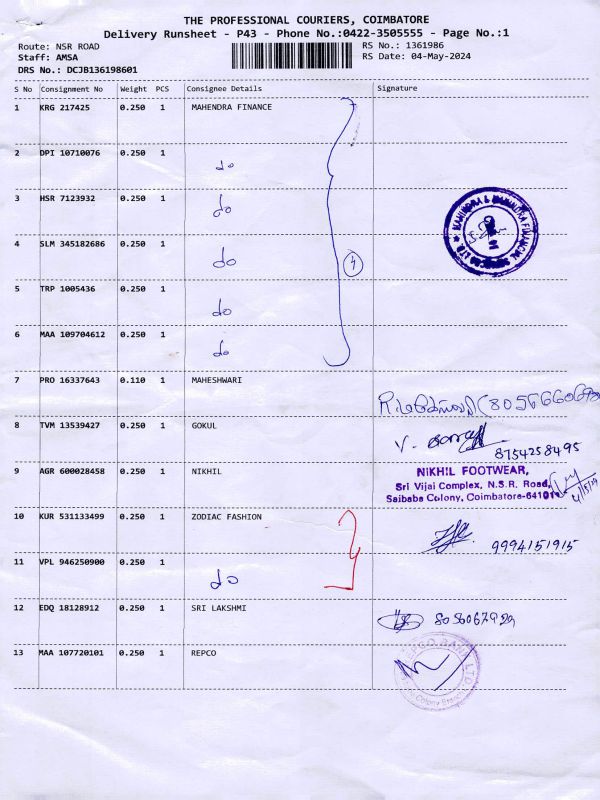 THE PROFESSIONAL COURIERS, COIMBATORE
Delivery Runsheet - P43 - Phone No.:0422-3505555 - Page No.:1
Route: NSR ROAD
RS No.: 1361986
Staff: AMSA
RS Date: 04-May-2024
DRS No.: DCJB136198601
S No Consignment No Weight PCS Consignee Details Signature
1 KRG 217425 0.250 1 MAHENDRA FINANCE
2 DPI 10710076 0.250 1 do
3 HSR 7123932 0.250 1 do
4 SLM 345182686 0.250 1 do
5 TRP 1005436 0.250 1 do
6 MAA 109704612 0.250 1 do
7 PRO 16337643 0.110 1 MAHESHWARI
8 TVM 13539427 0.250 1 GOKUL
8754258495
9 AGR 600028458 0.250 1 NIKHIL
NIKHIL FOOTWEAR,
Sri Vijai Complex, N.S.R. Road,
Saibaba Colony, Coimbatore-64101
10 KUR 531133499 0.250 1 ZODIAC FASHION
9994151915
11 VPL 946250900 0.250 1 do
12 EDQ 18128912 0.250 1 SRI LAKSHMI
13 MAA 107720101 0.250 1 REPCO
REPCO BANK LTD.
Colony Branch